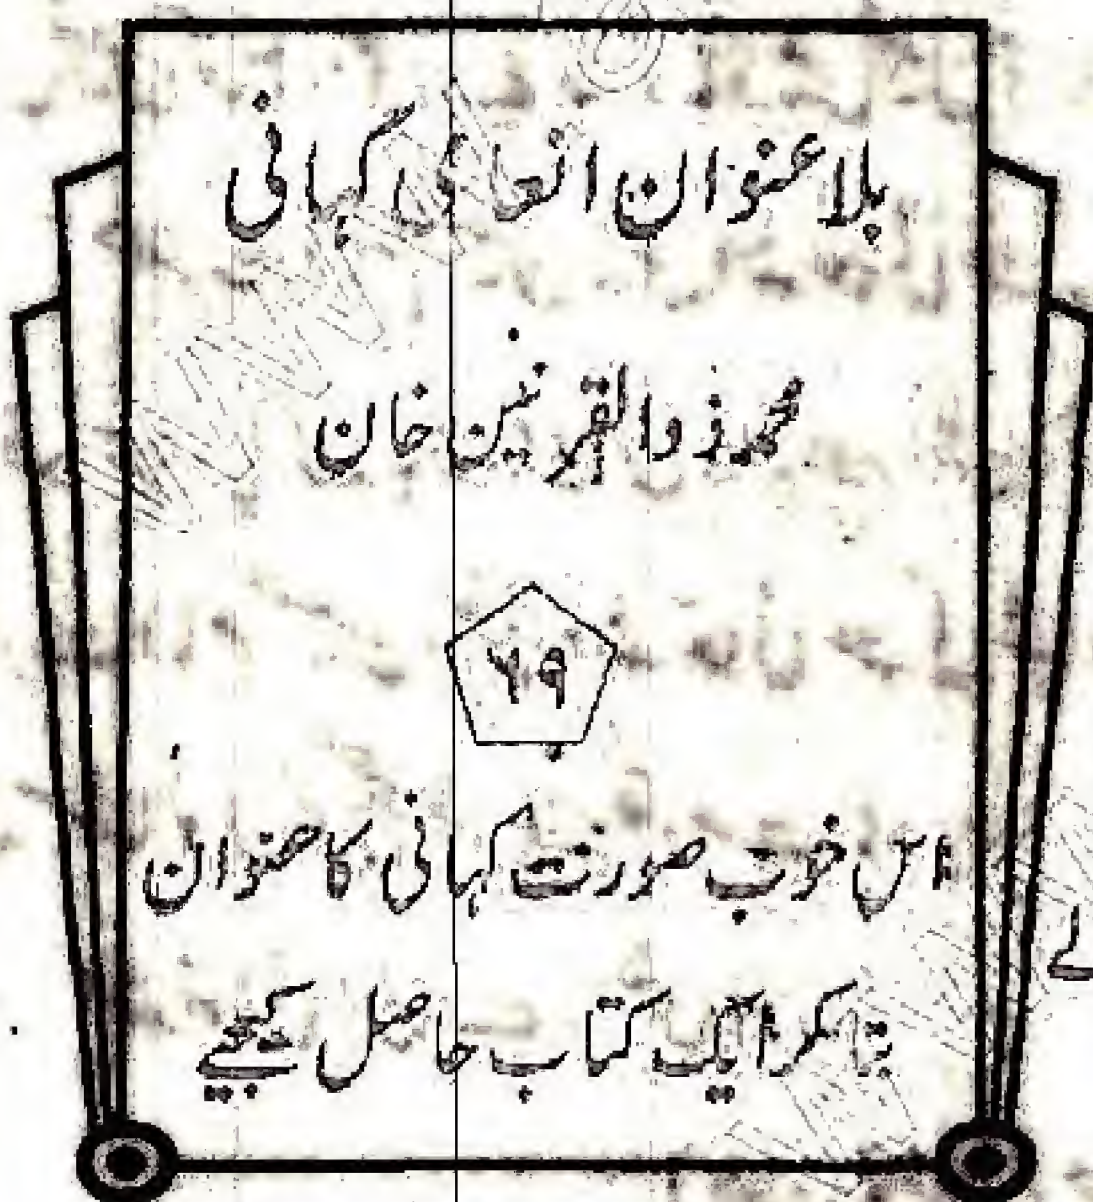 بلا عنوان انعامی کہانی
محمد ذوالقرنین خان
۷۹
اس خوب صورت کہانی کا عنوان
بتا کر ایک کتاب حاصل کیجیے